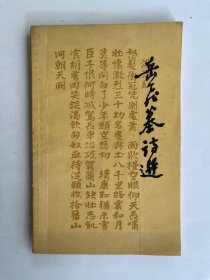 岳飞墓诗选
怒髮衝冠憑闌處瀟雨歇擡望眼仰天長嘯
壯懷激烈三十功名塵與土八千里路雲和月
莫等閒白了少年頭空悲切靖康恥猶未雪
臣子恨何時滅駕長車踏破賀蘭山缺壯志飢
餐胡虜肉笑談渴飲匈奴血待從頭收拾舊山
河朝天闕